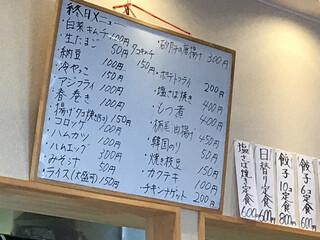 終日メニュー
・白菜キムチ 100円
・生たまご 50円
・納豆 100円
・冷やっこ 150円
・アジフライ 100円
・春巻き 100円
・揚げタコ焼き 150円
・コロッケ 100円
・ハムカツ 100円
・ハムエッグ 300円
・みそ汁 50円
・ライス(大盛り) 150円
の唐揚げ 300円
・ポテトフライ 200円
・塩さば焼き 400円
・もつ煮 400円
・油揚げ 450円
・韓国のり 50円
・焼き枝豆 150円
・カクテキ 100円
・チキンナゲット 200円
塩さば焼き定食 600円
日替り定食 600円
餃子10コ定食 800円
餃子6コ定食 600円